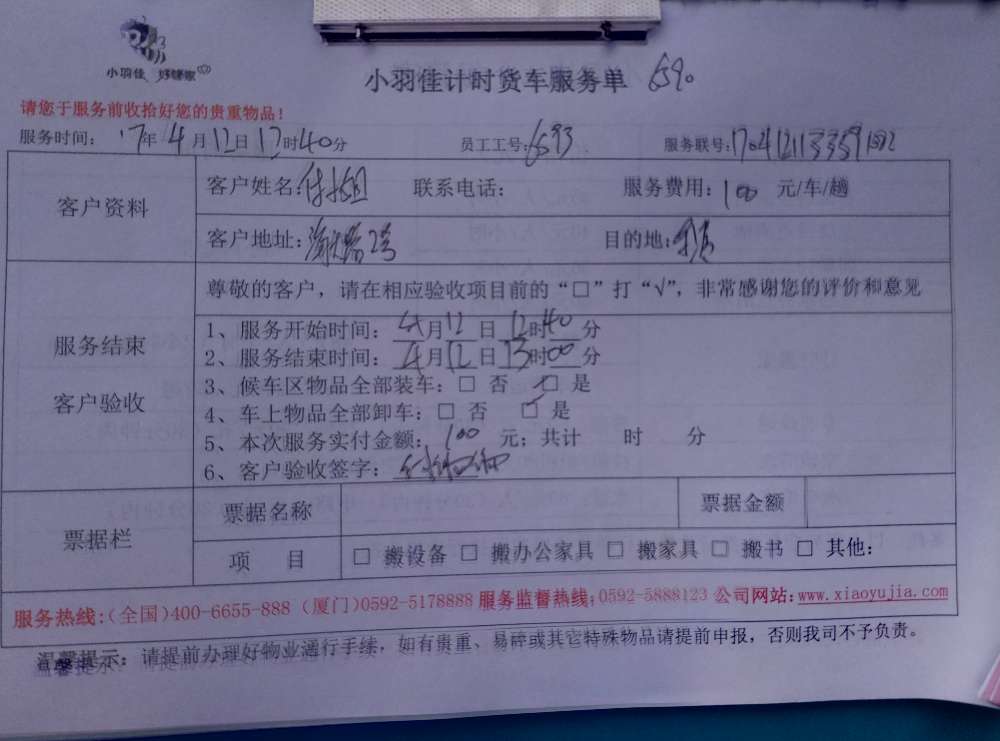 小羽佳 好嫁家
小羽佳计时货车服务单 690
请您于服务前收拾好您的贵重物品！
服务时间： 17年4月12日12时40分 员工工号：6593 服务联号：
客户资料
客户姓名： 联系电话： 服务费用：100 元/车/趟
客户地址： 目的地：
服务结束
客户验收
尊敬的客户，请在相应验收项目前的“□”打“√”，非常感谢您的评价和意见
1、服务开始时间：4月12日12时40分
2、服务结束时间：4月12日13时00分
3、候车区物品全部装车：□ 否 □ 是
4、车上物品全部卸车：□ 否 □ 是
5、本次服务实付金额：100 元；共计 时 分
6、客户验收签字：
票据栏
票据名称 票据金额
项 目 □ 搬设备 □ 搬办公家具 □ 搬家具 □ 搬书 □ 其他：
服务热线：(全国)400-6655-888 (厦门)0592-5178888 服务监督热线：0592-5888123 公司网站：www.xiaoyujia.com
温馨提示：请提前办理好物业通行手续，如有贵重、易碎或其它特殊物品请提前申报，否则我司不予负责。